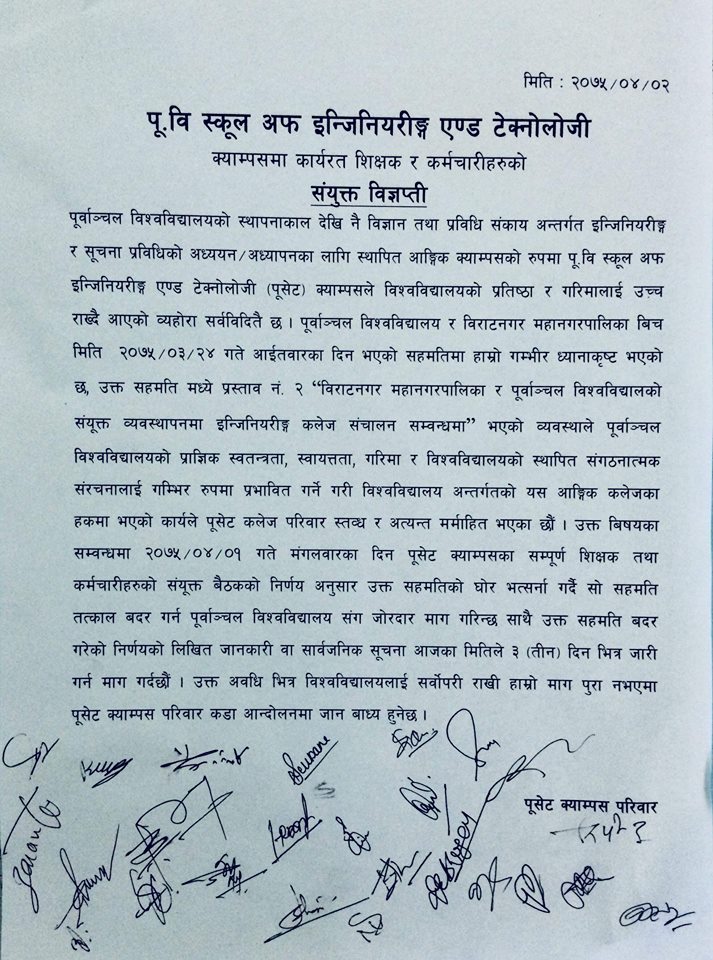 मिति : २०७५/०४/०२
पू.वि स्कूल अफ इन्जिनियरीङ्ग एण्ड टेक्नोलोजी
क्याम्पसमा कार्यरत शिक्षक र कर्मचारीहरुको
संयुक्त विज्ञप्ती
पूर्वाञ्चल विश्वविद्यालयको स्थापनाकाल देखि नै विज्ञान तथा प्रविधि संकाय अन्तर्गत इन्जिनियरीङ्ग
र सूचना प्रविधिको अध्ययन/अध्यापनका लागि स्थापित आङ्गिक क्याम्पसको रुपमा पू.वि स्कूल अफ
इन्जिनियरीङ्ग एण्ड टेक्नोलोजी (पूसेट) क्याम्पसले विश्वविद्यालयको प्रतिष्ठा र गरिमालाई उच्च
राख्दै आएको व्यहोरा सर्वविदितै छ । पूर्वाञ्चल विश्वविद्यालय र विराटनगर महानगरपालिका बिच
मिति २०७५/०३/२४ गते आईतवारका दिन भएको सहमतिमा हाम्रो गम्भीर ध्यानाकृष्ट भएको
छ, उक्त सहमति मध्ये प्रस्ताव नं. २ “विराटनगर महानगरपालिका र पूर्वाञ्चल विश्वविद्यालको
संयूक्त व्यवस्थापनमा इन्जिनियरीङ्ग कलेज संचालन सम्वन्धमा” भएको व्यवस्थाले पूर्वाञ्चल
विश्वविद्यालयको प्राज्ञिक स्वतन्त्रता, स्वायत्तता, गरिमा र विश्वविद्यालयको स्थापित संगठनात्मक
संरचनालाई गम्भिर रुपमा प्रभावित गर्ने गरी विश्वविद्यालय अन्तर्गतको यस आङ्गिक कलेजका
हकमा भएको कार्यले पूसेट कलेज परिवार स्तव्ध र अत्यन्त मर्माहित भएका छौं । उक्त बिषयका
सम्वन्धमा २०७५/०४/०१ गते मंगलवारका दिन पूसेट क्याम्पसका सम्पूर्ण शिक्षक तथा
कर्मचारीहरुको संयूक्त बैठकको निर्णय अनुसार उक्त सहमतिको घोर भत्सर्ना गर्दै सो सहमति
तत्काल बदर गर्न पूर्वाञ्चल विश्वविद्यालय संग जोरदार माग गरिन्छ साथै उक्त सहमति बदर
गरेको निर्णयको लिखित जानकारी वा सार्वजनिक सूचना आजका मितिले ३ (तीन) दिन भित्र जारी
गर्न माग गर्दछौं । उक्त अवधि भित्र विश्वविद्यालयलाई सर्वोपरी राखी हाम्रो माग पुरा नभएमा
पूसेट क्याम्पस परिवार कडा आन्दोलनमा जान बाध्य हुनेछ ।
पूसेट क्याम्पस परिवार